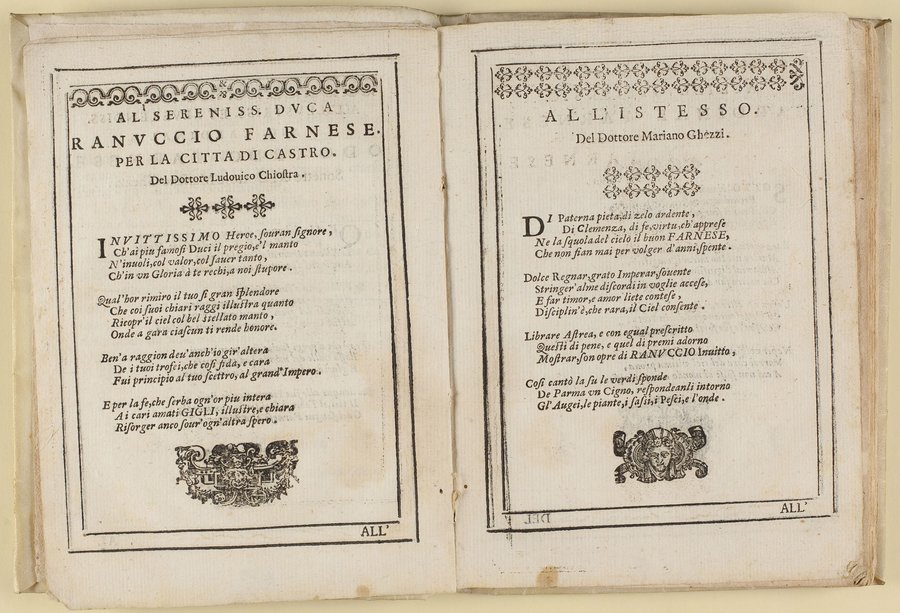 AL' SERENISS. DVCA
RANVCCIO FARNESE.
PER LA CITTA DI CASTRO.
Del Dottore Ludouico Chioſtra.
INVITTISSIMO Heroe, ſouran ſignore,
Ch'ai piu famoſi Duci il pregio, e'l manto
N'inuoli, col valor, col ſauer tanto,
Ch'in vn Gloria à te rechi, a noi ſtupore.
Qual'hor rimiro il tuo ſi gran ſplendore
Che coi ſuoi chiari raggi illuſtra quanto
Ricopr'il ciel col bel ſtellato manto,
Onde a gara ciaſcun ti rende honore.
Ben'a raggion deu'anch'io gir'altera
De i tuoi trofei, che coſi fida, e cara
Fui principio al tuo ſcettro, al grand'Impero.
E per la fe, che ſerba ogn'or piu intera
A i cari amati GIGLI, illuſtre, e chiara
Riſorger anco ſour'ogn'altra ſpero.
ALL'
ALL'ISTESSO.
Del Dottore Mariano Ghezzi.
DI Paterna pieta, di zelo ardente,
Di Clemenza, di fe, virtu, ch'appreſe
Ne la ſquola del cielo il buon FARNESE,
Che non ſian mai per volger d'anni, ſpente.
Dolce Regnar, grato Imperar, ſouente
Stringer'alme diſcordi in voglie acceſe,
E far timor, e amor liete conteſe,
Diſciplin'è, che rara, il Ciel conſente.
Librare Aſtrea, e con egual preſcritto
Queſti di pene, e quel di premi adorno
Moſtrar, ſon opre di RANVCCIO Inuitto,
Coſi cantò la ſu le verdi ſponde
De Parma vn Cigno, reſpondeanli intorno
Gl'Augei, le piante, i ſaſſi, i Peſci, e l'onde.
ALL'